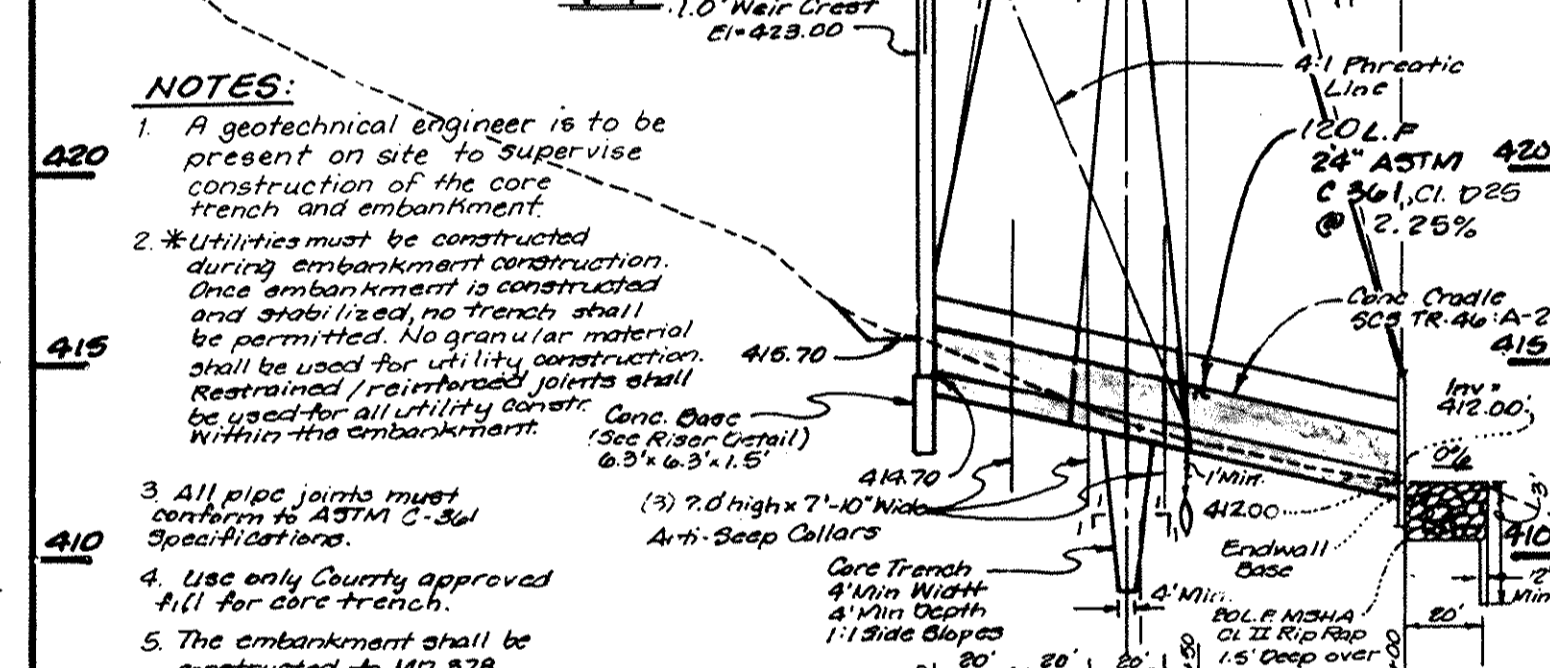 1.0' Weir Crest
El=423.00
NOTES:
1. A geotechnical engineer is to be
present on site to supervise
construction of the core
trench and embankment.
2. *Utilities must be constructed
during embankment construction.
Once embankment is constructed
and stabilized, no trench shall
be permitted. No granular material
shall be used for utility construction.
Restrained/reinforced joints shall
be used for all utility constr.
within the embankment.
3. All pipe joints must
conform to ASTM C-361
Specifications.
4. Use only County approved
fill for core trench.
5. The embankment shall be
constructed to MD 378
420
415
410
4:1 Phreatic
Line
120 L.F
24" ASTM
C 361, Cl. D25
@ 2.25%
420
Conc. Cradle
SCS TR-46:A-2
415
Inv=
412.00
0%
3'
410
12"
Min
415.70
Conc. Base
(See Riser Detail)
6.3'x6.3'x1.5'
414.70
(3) 7.0' high x 7'-10" Wide
Anti-Seep Collars
1' Min.
412.00
Endwall
Base
Core Trench
4' Min Width
4' Min Depth
1:1 Side Slopes
4' Min.
20 L.F. MSHA
Cl. II Rip Rap
1.5' Deep over
20'
20'
20'
20'
+50
+00